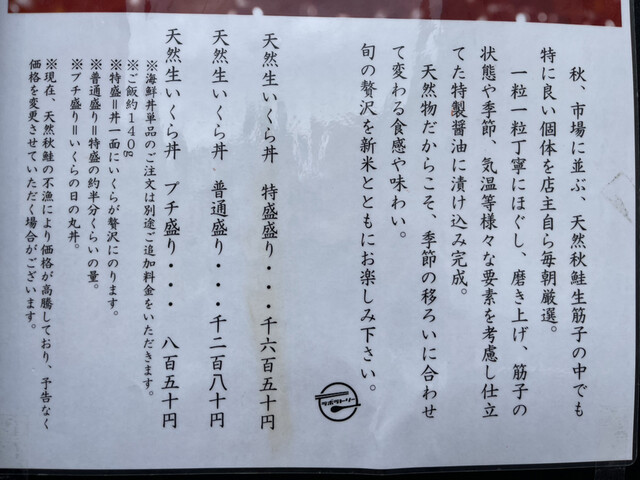 秋、市場に並ぶ、天然秋鮭生筋子の中でも
特に良い個体を店主自ら毎朝厳選。
一粒一粒丁寧にほぐし、磨き上げ、筋子の
状態や季節、気温等様々な要素を考慮し仕立
てた特製醤油に漬け込み完成。
天然物だからこそ、季節の移ろいに合わせ
て変わる食感や味わい。
旬の贅沢を新米とともにお楽しみ下さい。
天然生いくら丼 特盛盛り・・・千六百五十円
天然生いくら丼 普通盛り・・・千二百八十円
天然生いくら丼 プチ盛り・・・八百五十円
※海鮮丼単品のご注文は別途ご追加料金をいただきます。
※ご飯約140g
※特盛＝丼一面にいくらが贅沢にのります。
※普通盛り＝特盛の約半分くらいの量。
※プチ盛り＝いくらの日の丸丼。
※現在、天然秋鮭の不漁により価格が高騰しており、予告なく
価格を変更させていただく場合がございます。